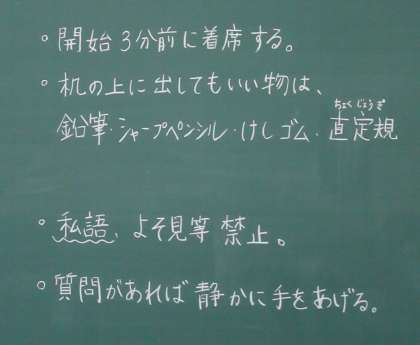 。開始3分前に着席する。
。机の上に出してもいい物は、
ちょくじょうぎ
鉛筆・シャープペンシル・けしゴム・直定規
。私語、よそ見等禁止。
。質問があれば静かに手をあげる。